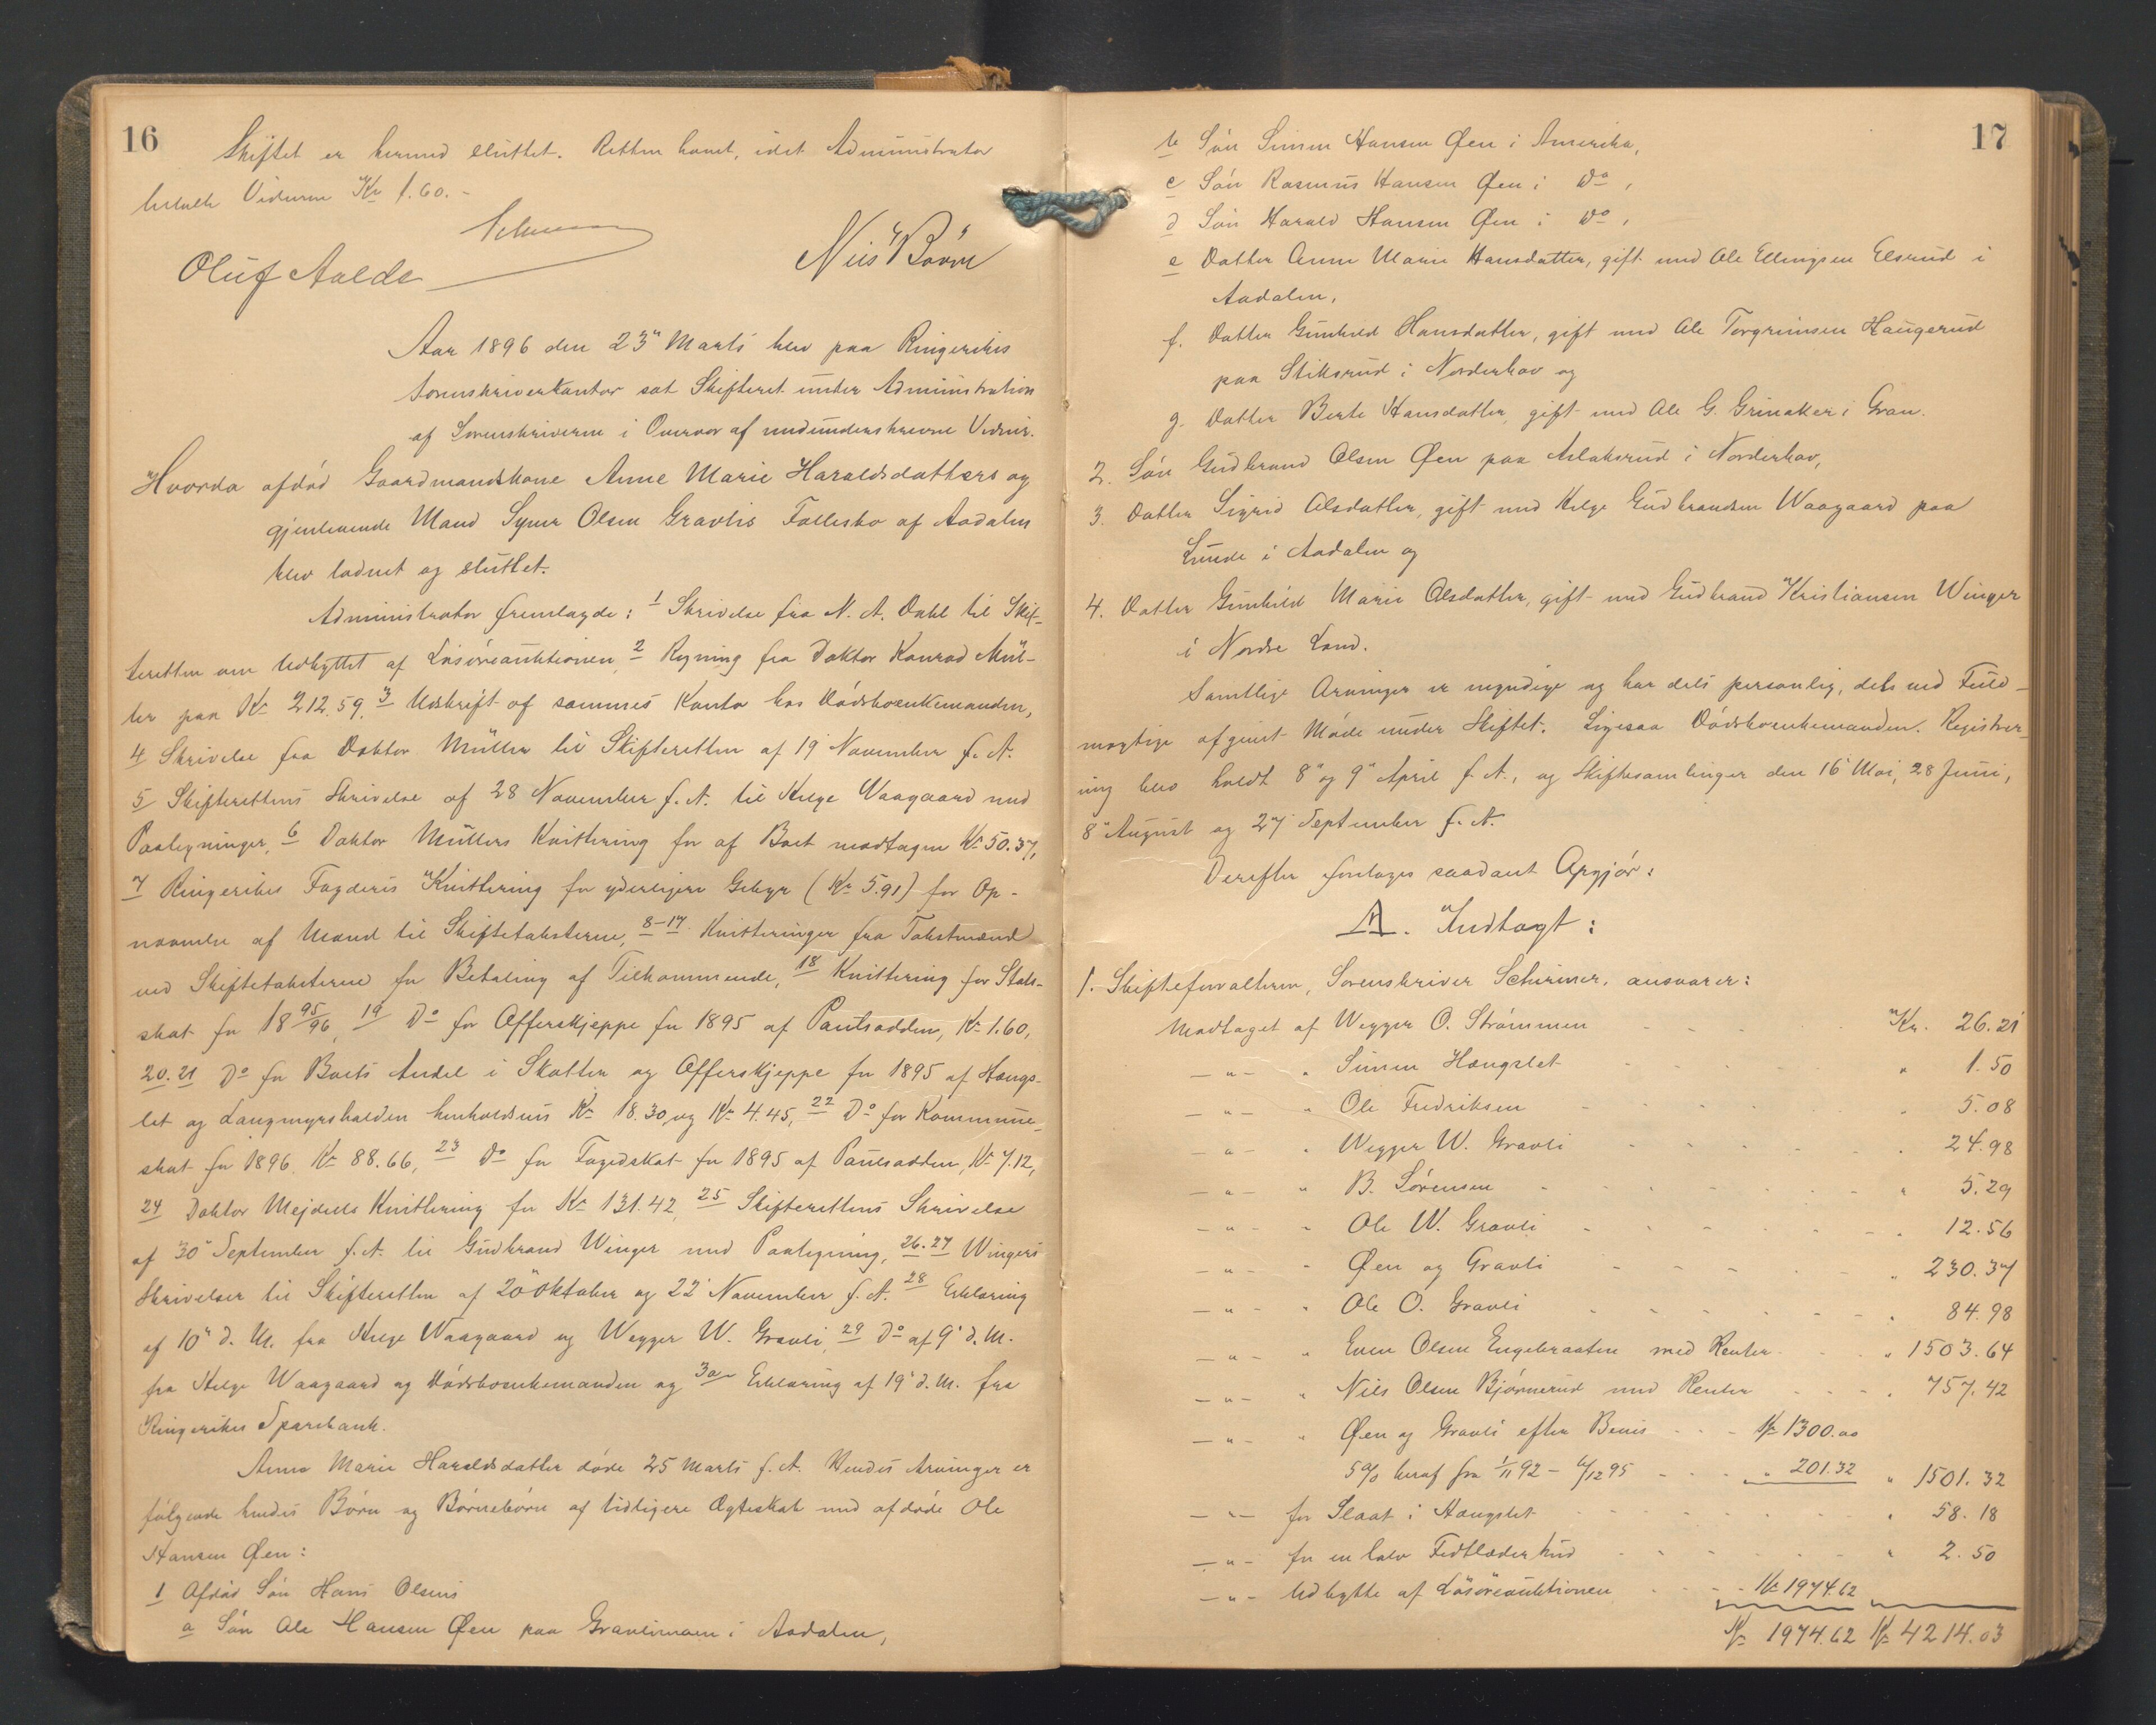 16
Skiftet er hermed sluttet. Retten hævet, idet Administrator
betalte Vidnerne Kr 1.60.-
Oluf Aalde
Aar 1896 den 23" Marts blev paa Ringerikes
Sorenskriverkontor sat Skifteret under Administration
af Sorenskriveren i Overvær af medunderskrevne Vidner.
Hvorda afdød Gaardmandskone Anne Marie Haraldsdatters og
gjenlevende Mand Syver Olsen Gravlis Fællesbo af Aadalen
blev ladnet og sluttet.
Administrator fremlagde: 1 Skrivelse fra N. A. Dahl til Skif-
teretten om Udbyttet af Løsøreauktionen, 2 Regning fra Doktor Konrad Mül-
ler paa Kr 212.59, 3 Udskrift af sammes Konto hos Dødsboenkemanden,
4 Skrivelse fra Doktor Müller til Skifteretten af 19' November f. A.
5 Skifterettens Skrivelse af 28 November f. A. til Helge Waagaard med
Paategninger, 6 Doktor Müllers Kvittering for af Boet modtagne Kr 50.37,
7 Ringerikes Fogderis Kvittering for yderligere Gebyr (Kr 5.91) for Op-
nævnelse af Mænd til Skiftetaksterne, 8-17 Kvitteringer fra Takstmænd
ved Skiftetaksterne for Betaling af Tilkommende, 18 Kvittering for Stats-
skat for 18 95/96, 19 Do for Offerskjeppe for 1895 af Paulsadden, Kr 1.60,
20.21 Do for Boets Andel i Skatten og Offerskjeppe for 1895 af Hængs-
let og Langmyrshalden henholdsvis Kr 18.30 og Kr 4.45, 22 Do for Kommune-
skat for 1896 Kr 88.66, 23 Do for Fogedskat for 1895 af Paulsadden, Kr 7.12,
24 Doktor Mejdells Kvittering for Kr 131.42, 25 Skifterettens Skrivelse
af 30" September f. A. til Gudbrand Winger med Paategning, 26.27 Wingers
Skrivelser til Skifteretten af 20 Oktober og 22' November f. A. 28 Erklæring
af 10" d. M. fra Helge Waagaard og Wegger W. Gravli, 29 Do af 9' d. M.
fra Helge Waagaard og Dødsboenkemanden og 30 Erklæring af 19' d. M. fra
Ringerikes Sparebank.
Anne Marie Haraldsdatter døde 25 Marts f. A. Hendes Arvinger er
følgende hendes Børn og Børnebørn af tidligere Ægteskab med afdøde Ole
Hansen Øen:
1 Afdød Søn Hans Olsens
a Søn Ole Hansen Øen paa Gravlimoen i Aadalen,
17
b Søn Simen Hansen Øen i Amerika,
c Søn Rasmus Hansen Øen i Do,
d Søn Harald Hansen Øen i Do,
e Datter Anne Marie Hansdatter, gift med Ole Ellingsen Elsrud i
Aadalen,
f. Datter Gunhild Hansdatter, gift med Ole Torgrimsen Haugerud
paa Stiksrud i Norderhov og
g. Datter Berte Hansdatter, gift med Ole G. Grinaker i Gran.
2. Søn Gudbrand Olsen Øen paa Aslaksrud i Norderhov,
3. Datter Sigrid Olsdatter, gift med Helge Gudbrandsen Waagaard paa
Lunde i Aadalen og
4. Datter Gunhild Marie Olsdatter, gift med Gudbrand Kristiansen Winger
i Nordre Land.
Samtlige Arvinger er myndige og har dels personlig, dels ved Fuld-
mægtige afgivet Møde under Skiftet. Ligesaa Dødsboenkemanden. Registrer-
ing blev holdt 8" og 9" April f. A., og Skiftesamlinger den 16' Mai, 28 Juni,
8" August og 27' September f. A.
Derefter foretoges saadant Opgjør:
A. Indtægt:
1. Skifteforvalteren, Sorenskriver Schirmer, ansvarer:
Modtaget af Wegger O. Strømmen Kr. 26.21
— " — " Simen Hængslet " 1.50
— " — " Ole Fredriksen " 5.08
— " — " Wegger W. Gravli " 24.98
— " — " B. Sørensen " 5.29
— " — " Ole W. Gravli " 12.56
— " — " Øen og Gravli " 230.37
— " — " Ole O. Gravli " 84.98
— " — " Even Olsen Engebraaten med Renter " 1503.64
— " — " Nils Olsen Bjørnerud med Renter " 757.42
— " — " Øen og Gravli efter Bevis Kr 1300.00
5% heraf fra 1/11 92 - 6/12 95 " 201.32 " 1501.32
— " — for Slaat i Hængslet " 58.18
— " — for en halv Fedtlæderhud " 2.50
— " — Udbytte af Løsøreauktionen Kr 1974.62
Kr 1974.62 Kr 4214.03